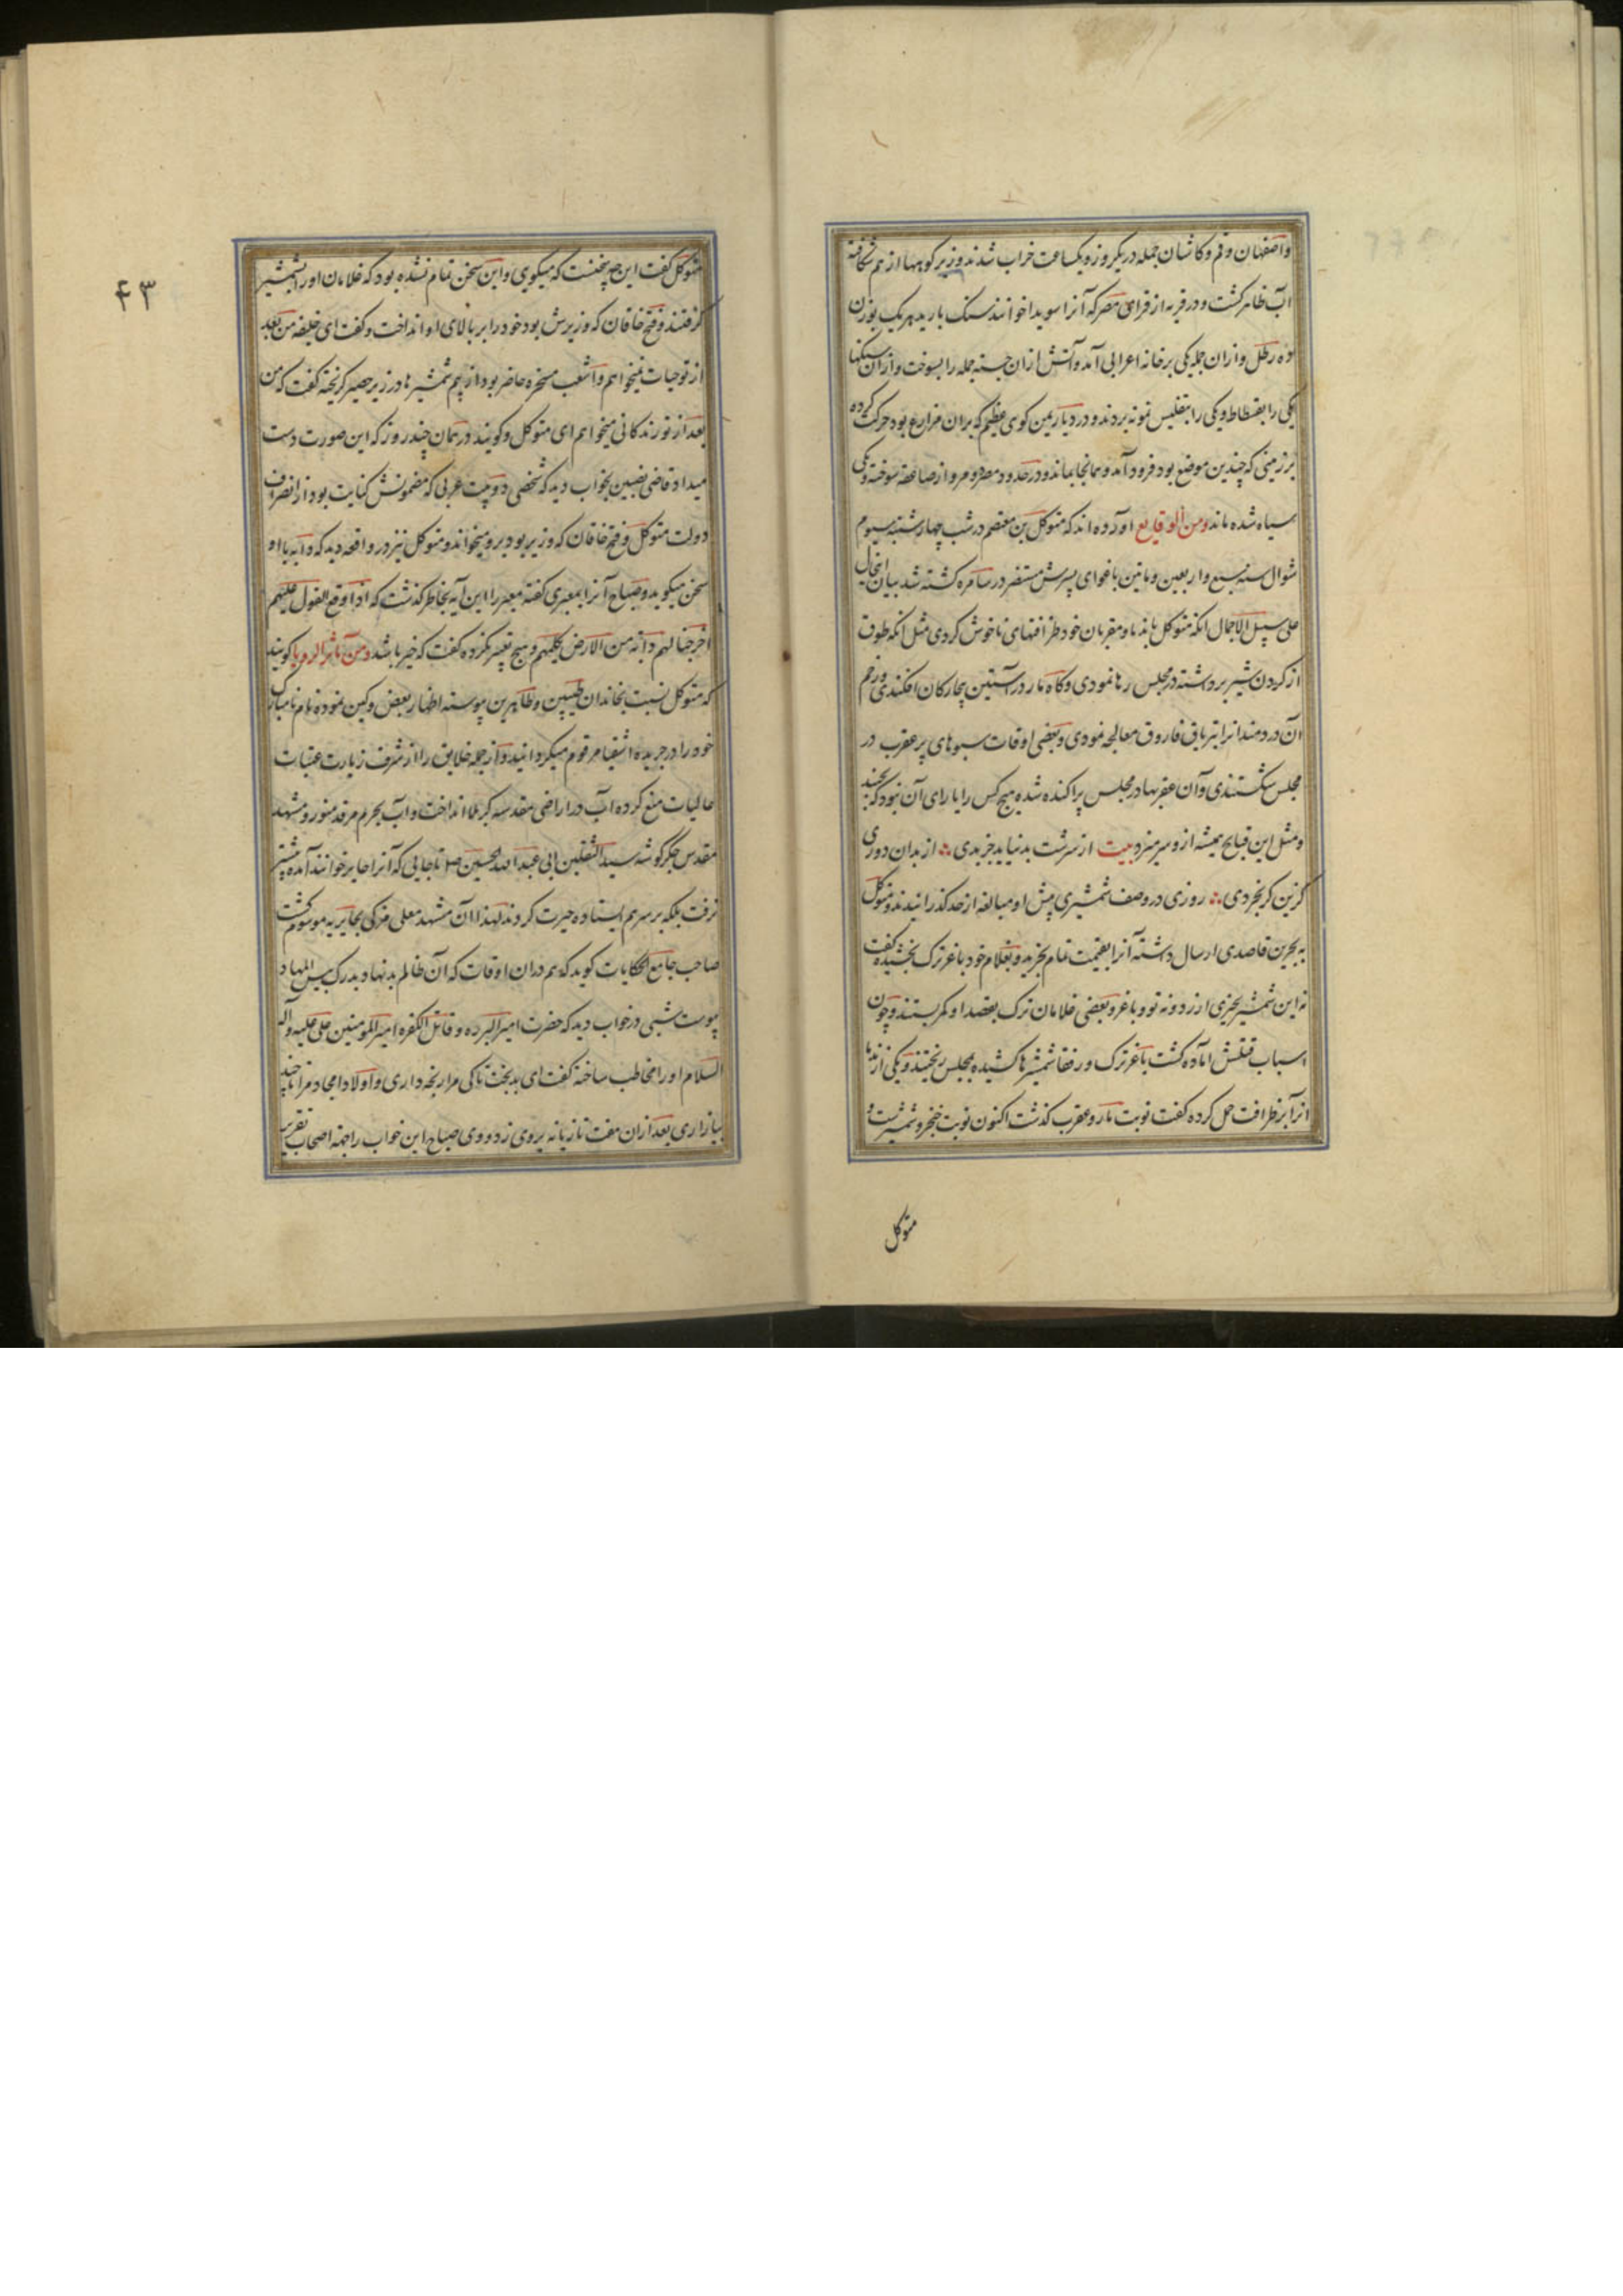 واصفهان و قم و کاشان جمله در یکروزه یکساعت خراب شدند و زیر کوهها از هم شکافته
آب ظاهر کشت و در قریه از قرای مصر که آنرا سویدا خوانند سنک بارید هر یک بوزن
ده رطل و ازان جمله یکی بر خانه اعرابی آمد و آتش ازان جسته جمله را بسوخت و ازان سنکها
یکی را بفسطاط و یکی را بتفلیس نمونه بردند و در دیار یمن کوی عظیم که بران مزارع بود حرکت کرده
بر زمینی که چندین موضع بود فرود آمد و همانجا بماند و در حدود مصر و مرو از صاعقه سوخته و یکی
سیاه شده ماند و من الوقایع آورده اند که متوکل بن معتصم در شب چهارشنبه سیوم
شوال سنه سبع و اربعین و مأتین باغوای پسرش مستنصر در سامره کشته شد بیان اینحال
علی سبیل الاجمال انکه متوکل باندما و مقربان خود ظرافتهای ناخوش کردی مثل انکه طوق
از کردن شیر برداشته در مجلس رها نمودی و کاه مار در آستین بیچارکان افکندی و زخم
آن دردمندانرا بتریاق فاروق معالجه نمودی و بعضی اوقات سبوهای پر عقرب در
مجلس شکستندی و آن عقربها در مجلس پراکنده شده هیچ کس را یارای آن نبود که بجنبد
و مثل این قبایح همیشه از و سر میزد بیت از سرشت بد نیاید جز بدی ∴ از بدان دوری
کزین کر بخردی ∴ روزی در وصف شمشیری پیش او مبالغه از حد کذرانیدند و متوکل
به بحرین قاصدی ارسال داشته آنرا بقیمت تمام بخرید و بغلام خود باغر ترک بخشیده کفت
نه این شمشیر بجزی از زد و نه تو و باغر و بعضی غلامان ترک بقصد او کمر بستند و چون
اسباب قتلش آماده کشت باغر ترک و رفقا شمشیرها کشیده بمجلس ریختند و یکی از ندما
انرا بر ظرافت حمل کرده کفت نوبت مار و عقرب کذشت اکنون نوبت خنجر و شمشیرست و
متوکل
۴۳
متوکل کفت این چه سخنست که میکویی و این سخن تمام نشده بود که غلامان او را بشمشیر
کرفتند و فتح خاقان که وزیرش بود خود را بر بالای او انداخت و کفت ای خلیفه من بعد
از تو حیات نمیخواهم و اشعب مسخره حاضر بود از بیم شمشیرها در زیر حصیر کریخته کفت که من
بعد از تو زندکانی میخواهم ای متوکل و کویند در همان چند روز که این صورت دست
میداد قاضی نصیبین بخواب دید که شخصی دو بیت عربی که مضمونش کنایت بود از انصراف
دولت متوکل و فتح خاقان که وزیر بود برو میخواند و متوکل نیز در واقعه دید که دابه با او
سخن میکوید و صباح آنرا بمعبری کفته معبر را این آیه بخاطر کذشت که اذا وقع القول علیهم
اخرجنا لهم دابة من الارض تکلمهم و هیچ تعبیر نکرده کفت که خیر باشد و من تأثیر الرویا کویند
که متوکل نسبت بخاندان طیبین و طاهرین پیوسته اظهار بغض و کین نموده نام نامبارک
خود را در جریده اشقیا مرقوم میکردانید و از جمله خلایق را از شرف زیارت عتبات
عالیات منع کرده آب در اراضی مقدسه کربلا انداخت و آب بحرم مرقد منور و مشهد
مقدس جکرکوشه سید الثقلین ابی عبد الله الحسین صلع تا جایی که آنرا حایر خوانند آمده پیشتر
نرفت بلکه بر سر هم ایستاده حیرت کردند لهذا آن مشهد معلی مزکی بحایریه موسوم کشت
صاحب جامع الحکایات کوید که هم دران اوقات که آن ظالم بد نهاد بدرک بیس المهاد
پیوست شبی در خواب دید که حضرت امیر البرره و قاتل الکفره امیر المومنین علی علیه و آله
السلام او را مخاطب ساخته کفت ای بدبخت تا کی مرا رنجه داری و اولاد امجاد مرا تا چند
بیازاری بعد ازان هفت تازیانه بروی زد و وی صباح این خواب را جهته اصحاب تقریر